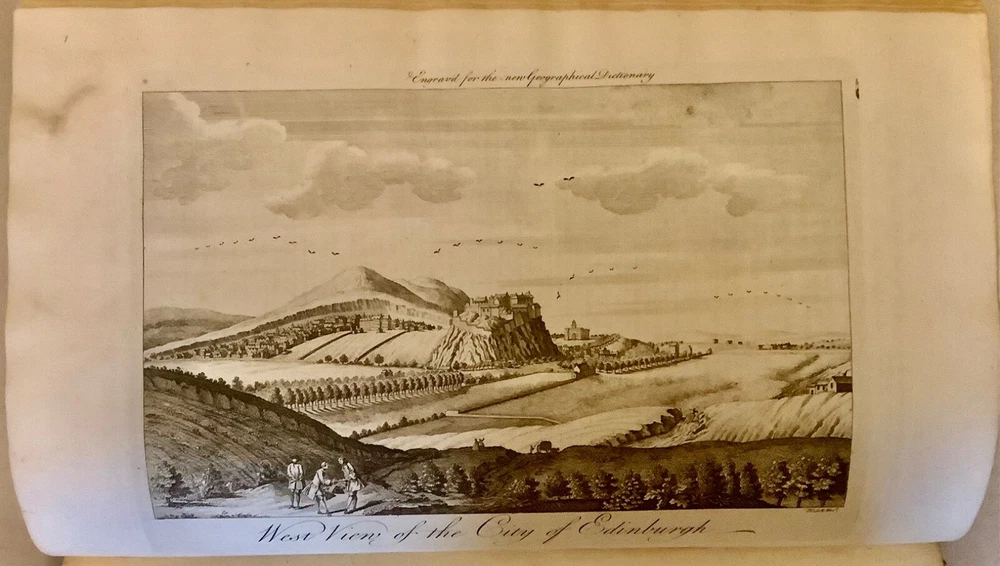 Engrav'd for the new Geographical Dictionary
West View of the City of Edinburgh